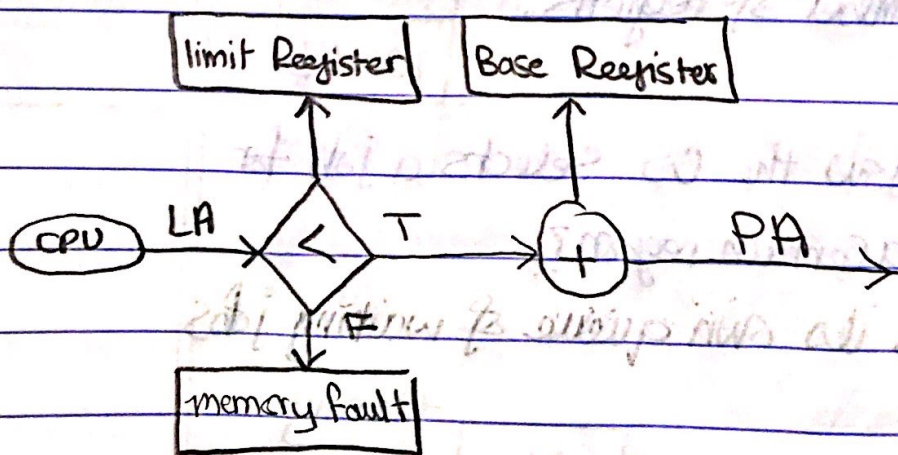 limit Register
Base Register
CPU
LA
<
T
+
PA
F
memory fault